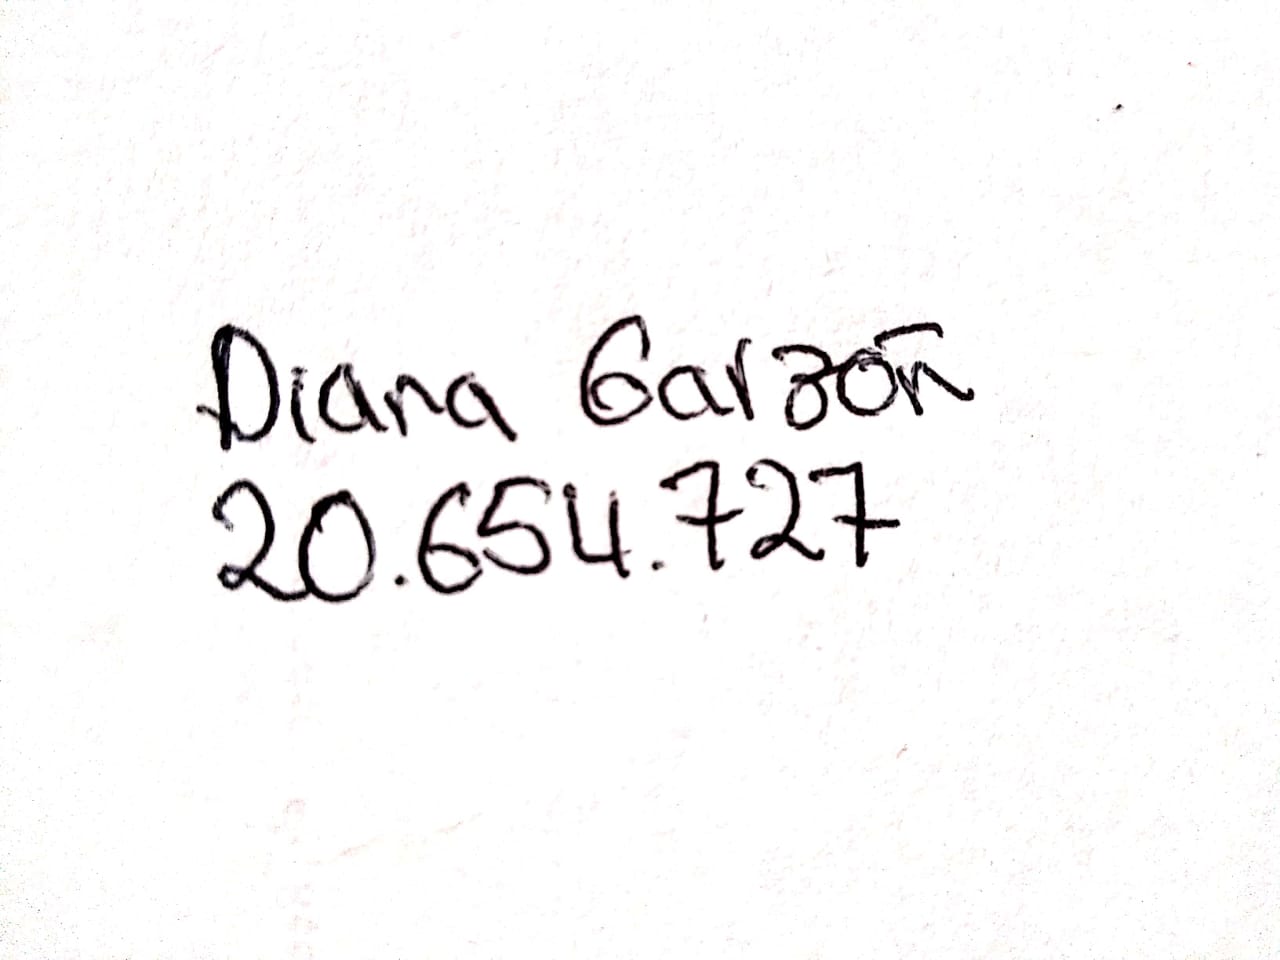 Diana Garzón
20.654.727